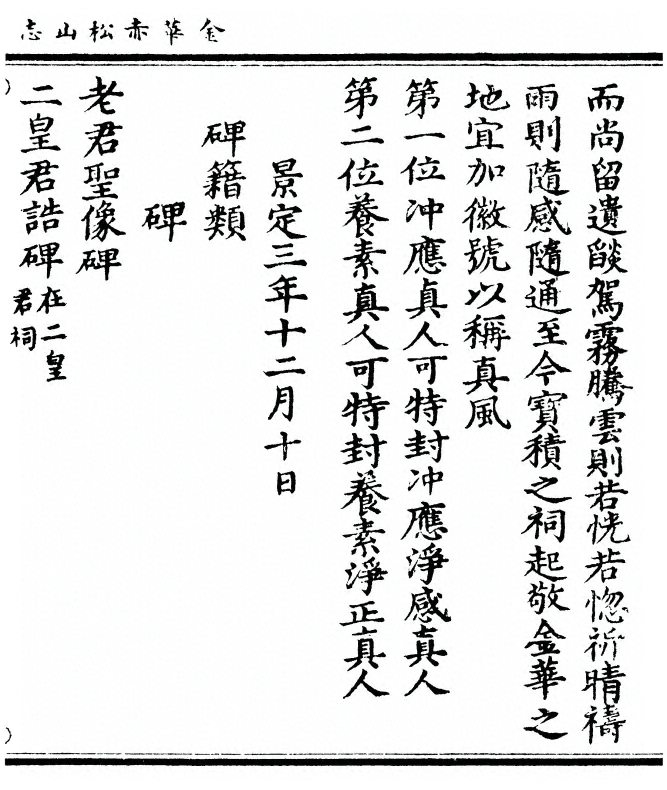 金華赤松山志
而尚留遺燄駕霧騰雲則若恍若惚祈晴禱
雨則隨感隨通至今寶積之祠起敬金華之
地宜加徽號以稱真風
第一位冲應真人可特封冲應淨感真人
第二位養素真人可特封養素淨正真人
景定三年十二月十日
碑籍類
碑
老君聖像碑
二皇君誥碑在二皇
君祠